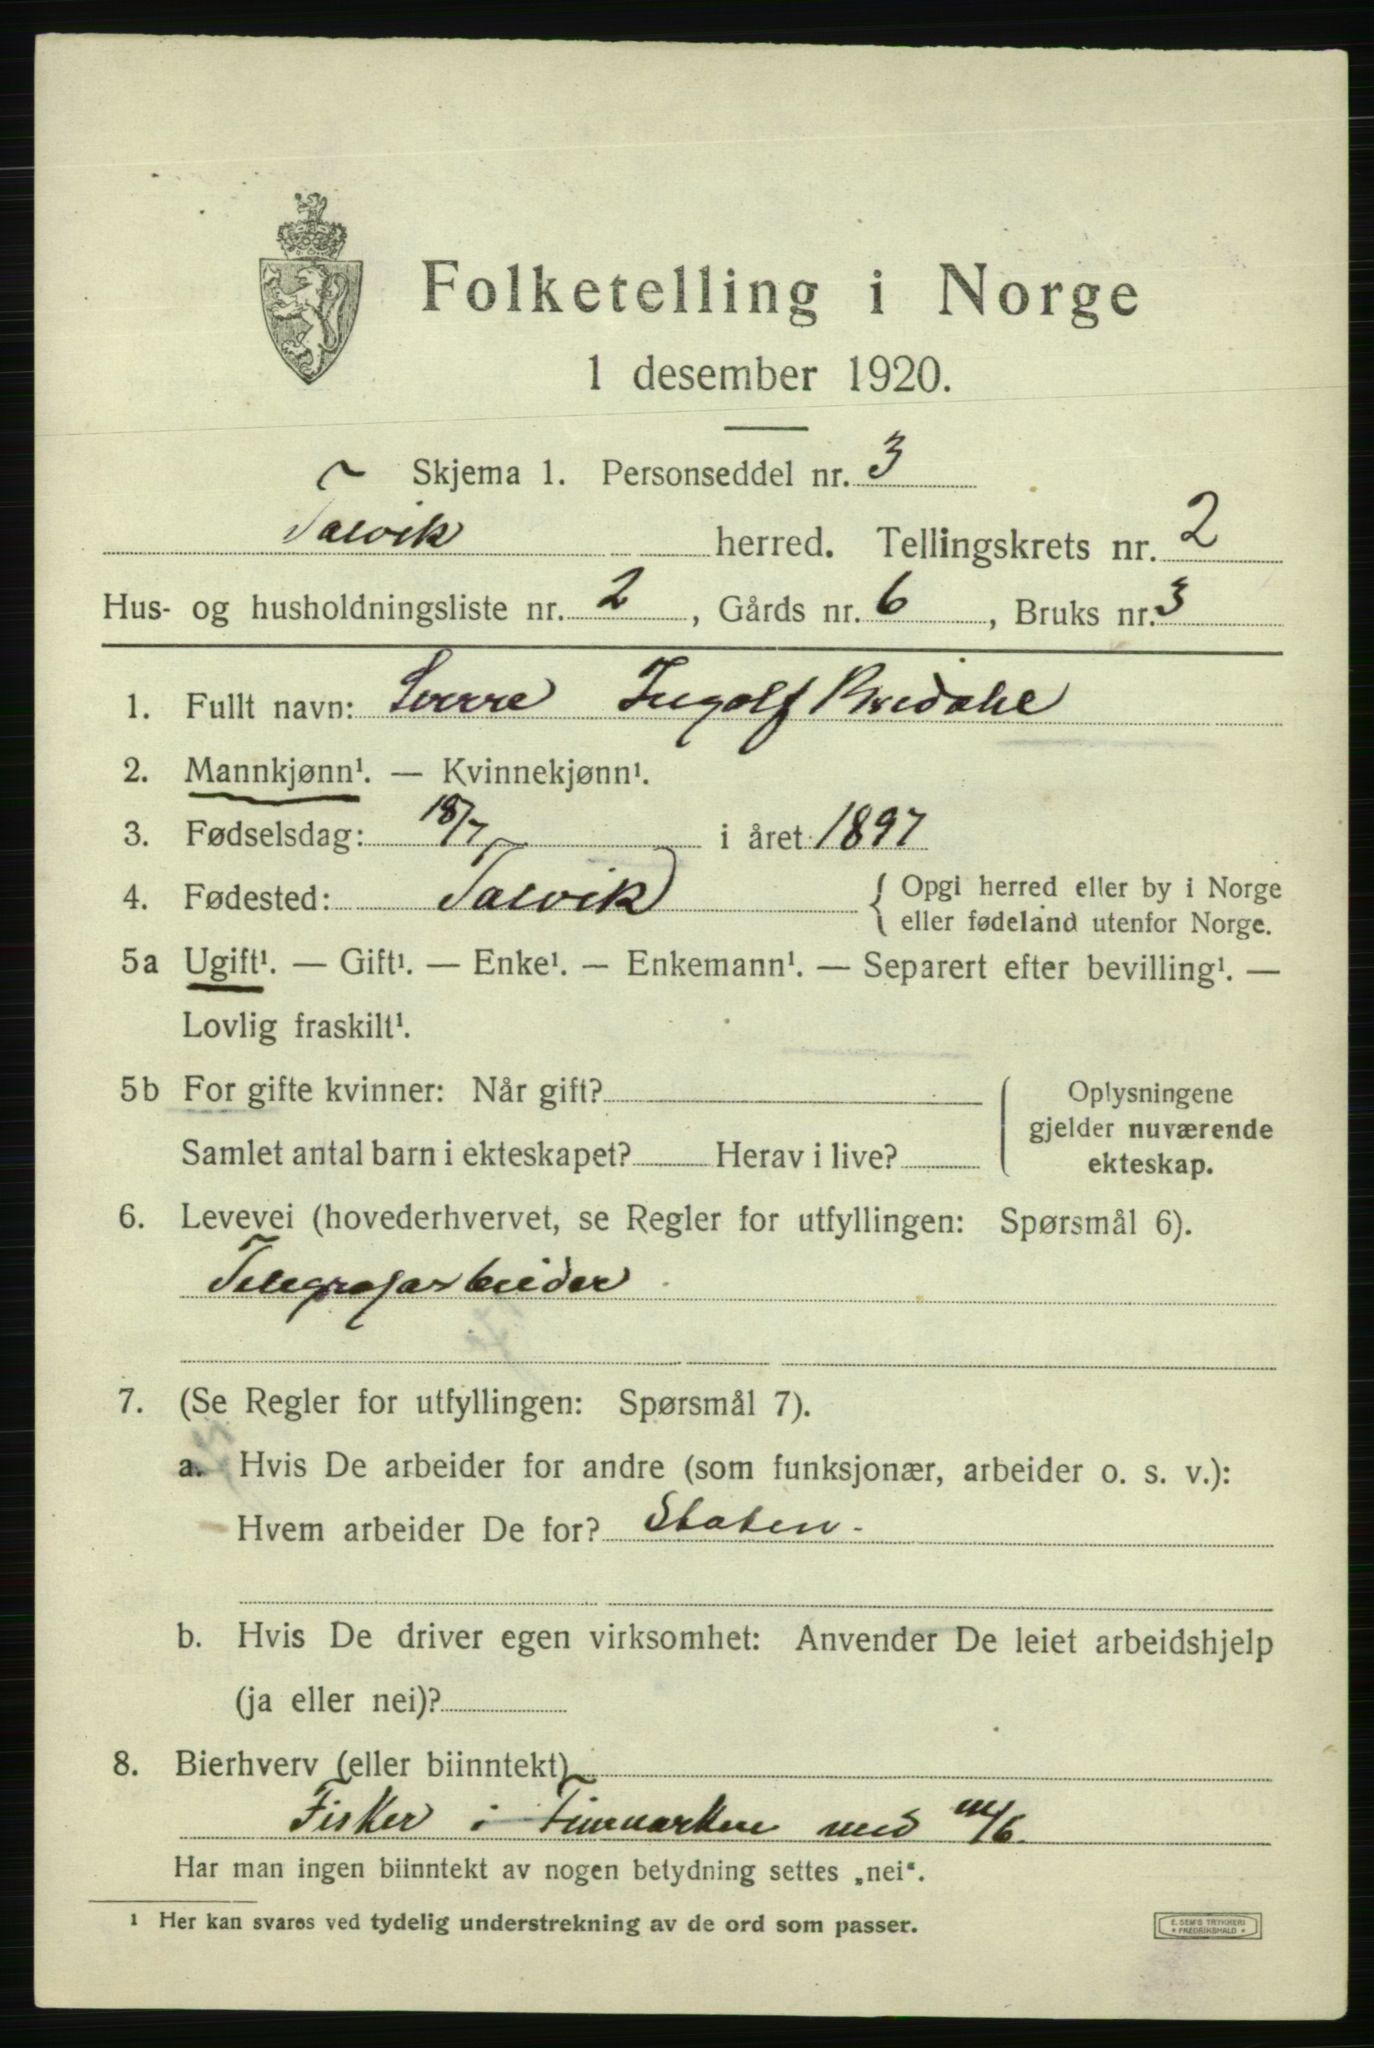 Folketelling i Norge
1 desember 1920.
Skjema 1. Personseddel nr. 3
Talvik herred. Tellingskrets nr. 2
Hus- og husholdningsliste nr. 2, Gårds nr. 6, Bruks nr. 3
1. Fullt navn: Sverre Ingolf Bredahl
2. Mannkjønn¹. — Kvinnekjønn¹.
3. Fødselsdag: 18/7 i året 1897
4. Fødested: Talvik { Opgi herred eller by i Norge
eller fødeland utenfor Norge.
5a Ugift¹. — Gift¹. — Enke¹. — Enkemann¹. — Separert efter bevilling¹. —
Lovlig fraskilt¹.
5b For gifte kvinner: Når gift?
Samlet antal barn i ekteskapet? Herav i live?
Oplysningene
gjelder nuværende
ekteskap.
6. Levevei (hovederhvervet, se Regler for utfyllingen: Spørsmål 6).
Telegrafarbeider
7. (Se Regler for utfyllingen: Spørsmål 7).
a. Hvis De arbeider for andre (som funksjonær, arbeider o. s. v.):
Hvem arbeider De for? Staten.
b. Hvis De driver egen virksomhet: Anvender De leiet arbeidshjelp
(ja eller nei)?
8. Bierhverv (eller biinntekt)
Fisker i Finmarken med m/b.
Har man ingen biinntekt av nogen betydning settes „nei“.
1 Her kan svares ved tydelig understrekning av de ord som passer.
E. SEM'S TRYKKERI
* FREDRIKSHALD *